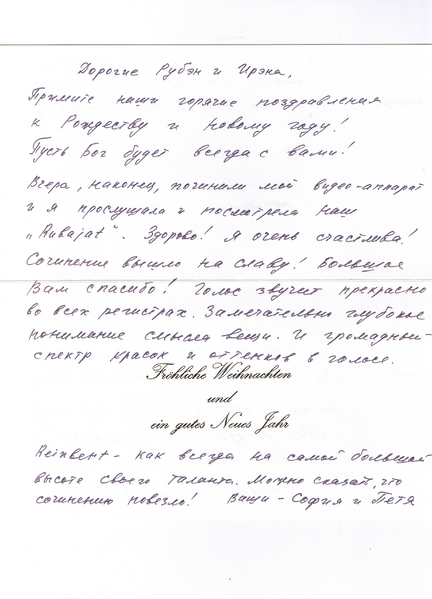 Дорогие Рубэн и Ирэна,
Примите наши горячие поздравления
к Рождеству и Новому году!
Пусть Бог будет всегда с вами!
Вчера, наконец, починили мой видео-аппарат
и я прослушала и посмотрела наш
„Rubajat“. Здорово! Я очень счастлива!
Сочинение вышло на славу! Большое
Вам спасибо! Голос звучит прекрасно
во всех регистрах. Замечательно глубокое
понимание смысла вещи. И громадный
спектр красок и оттенков в голосе.
Fröhliche Weihnachten
und
ein gutes Neues Jahr
Reinbert - как всегда на самой большой
высоте своего таланта. Можно сказать, что
сочинению повезло! Ваши - София и Петя